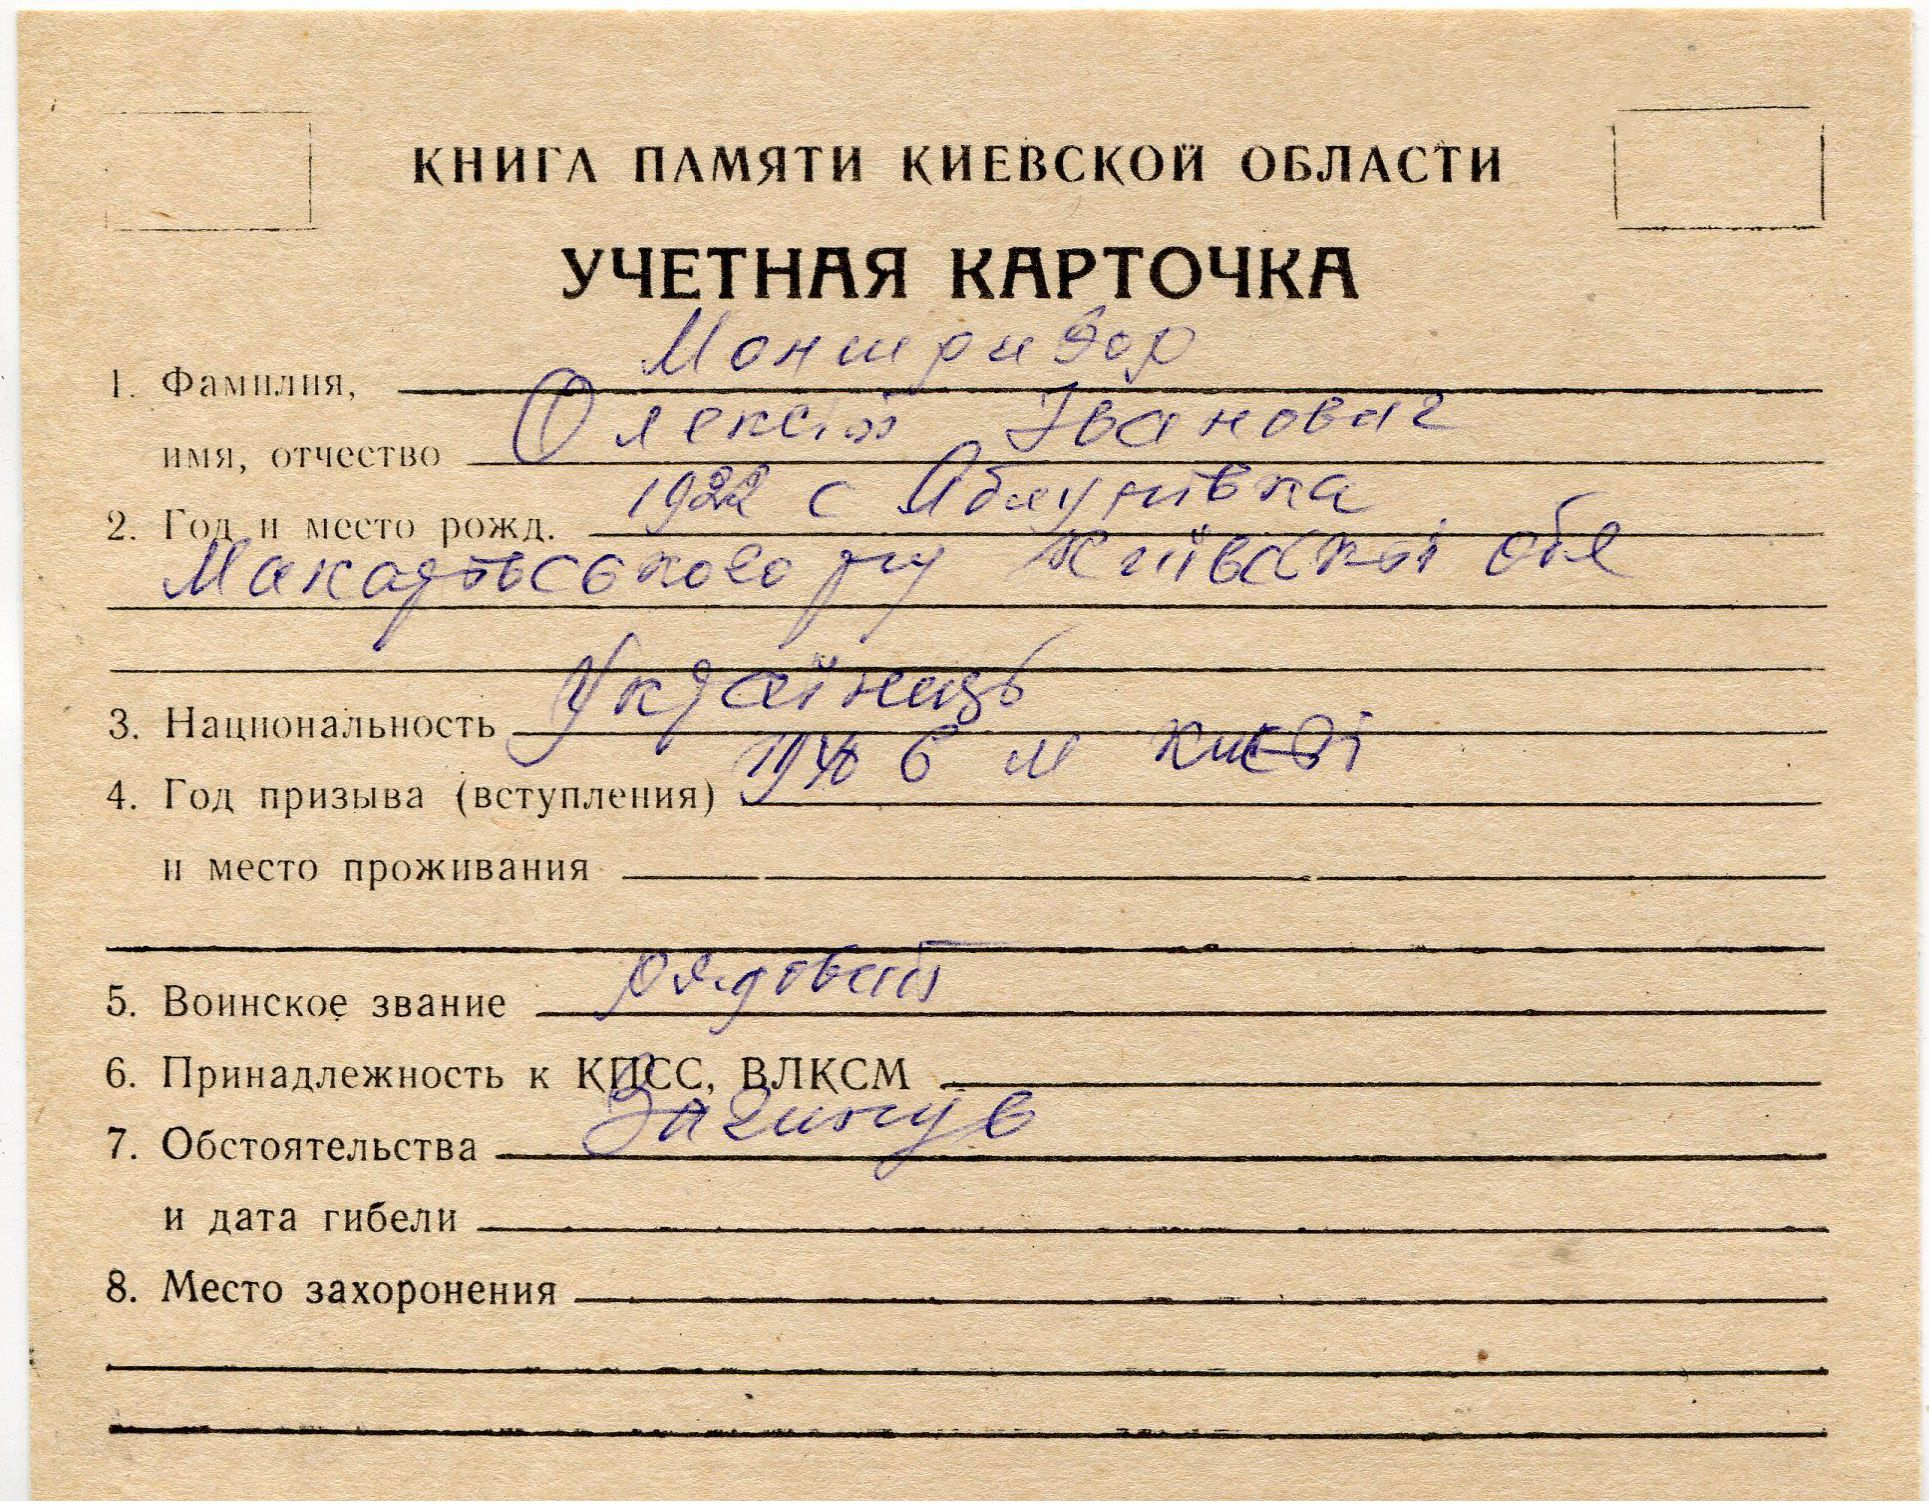 КНИГА ПАМЯТИ КИЕВСКОЙ ОБЛАСТИ
УЧЕТНАЯ КАРТОЧКА
1. Фамилия, Монтридор
имя, отчество Олексій Іванович
2. Год и место рожд. 1922 с Яблунівка
Макарівського р-ну Київської обл
3. Национальность Українець
4. Год призыва (вступления) в м Києві
и место проживания
5. Воинское звание рядовий
6. Принадлежность к КПСС, ВЛКСМ
7. Обстоятельства Загинув
и дата гибели
8. Место захоронения